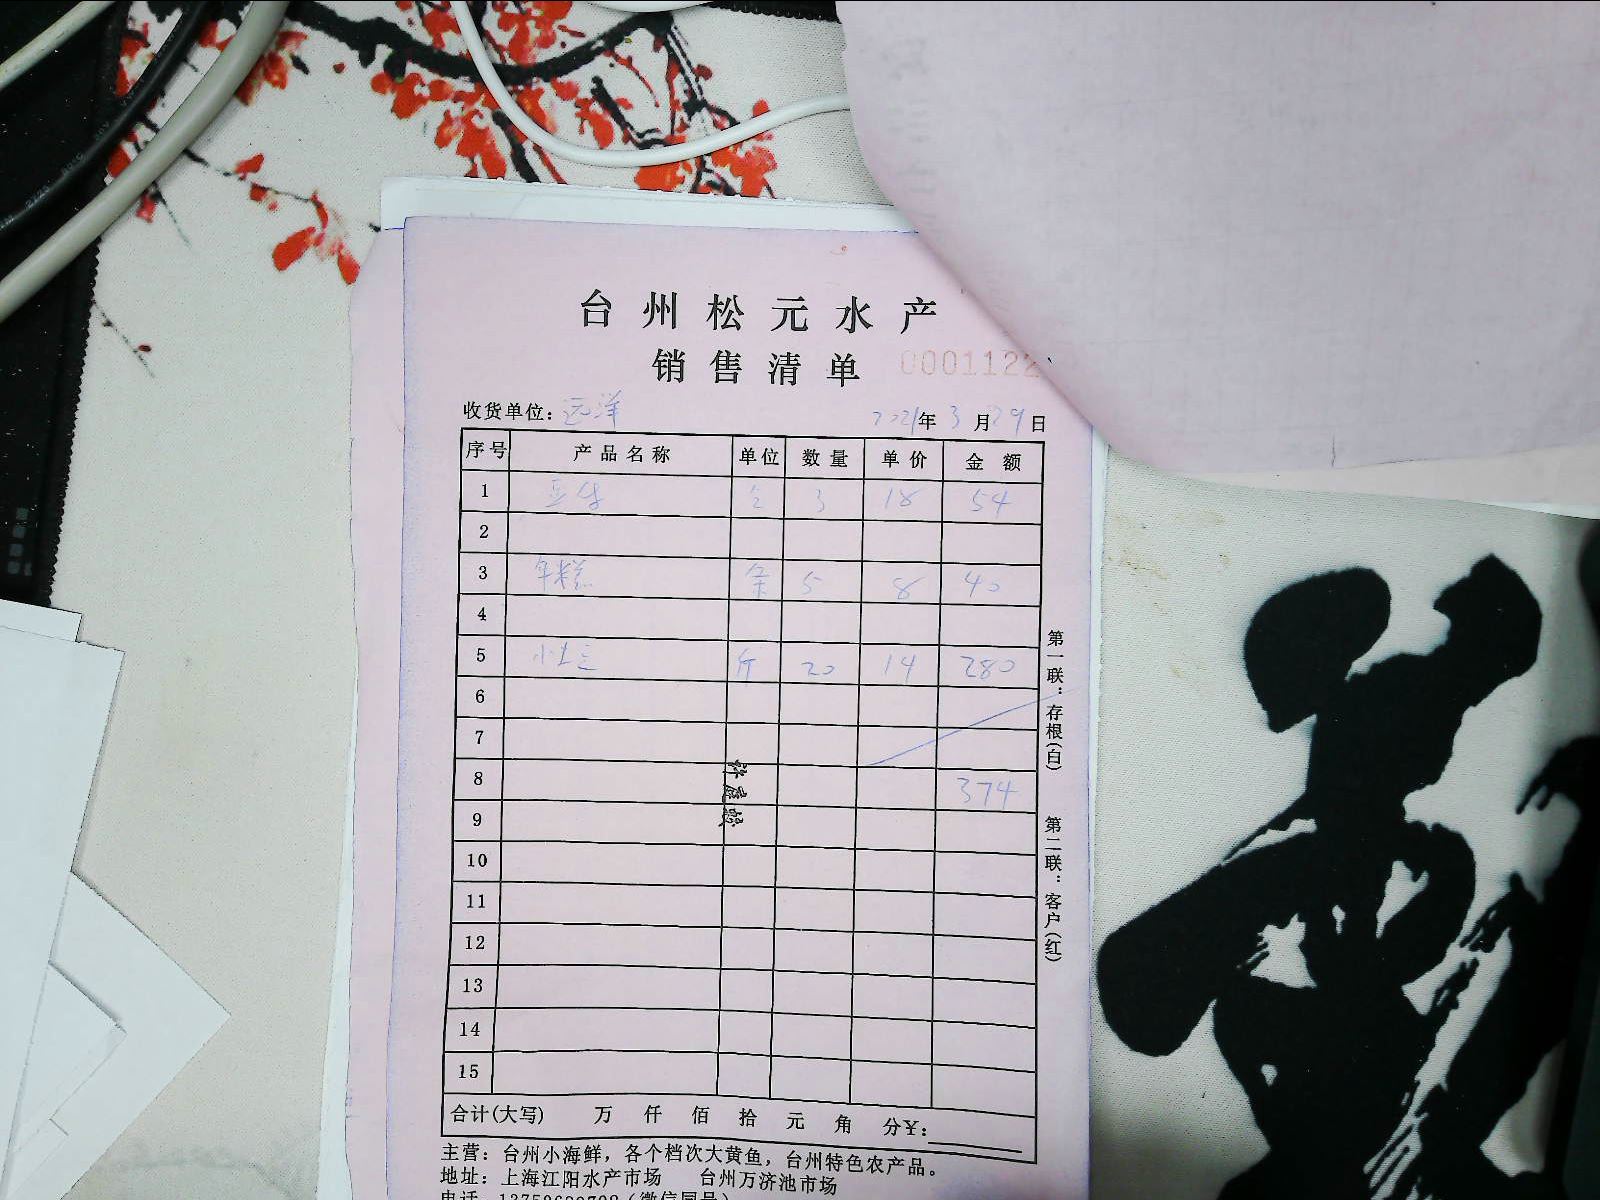 台州松元水产
销售清单 0001122
收货单位：远洋 2021年3月29日
序号 产品名称 单位 数量 单价 金额
1 3 18 54
2
3 年糕 5 8 40
4
5 小 斤 20 14 280
6
7
8 374
9
10
11
12
13
14
15
合计(大写) 万 仟 佰 拾 元 角 分¥：
主营：台州小海鲜，各个档次大黄鱼，台州特色农产品。
地址：上海江阳水产市场 台州万济池市场
第一联：存根(白) 第二联：客户(红)